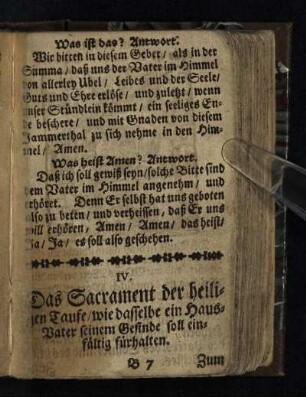 Was ist das? Antwort.
Wir bitten in diesem Gebet/ als in der
Summa/ daß uns der Vater im Himmel
von allerley Ubel/ Leibes und der Seele/
Guts und Ehre erlöse/ und zuletzt/ wenn
unser Stündlein kömmt/ ein seeliges En-
de beschere/ und mit Gnaden von diesem
Jammerthal zu sich nehme in den Him-
mel/ Amen.
Was heist Amen? Antwort.
Daß ich soll gewiß seyn/ solche Bitte sind
dem Vater im Himmel angenehm/ und
erhöret. Denn Er selbst hat uns geboten
also zu beten/ und verheissen/ daß Er uns
will erhören/ Amen/ Amen/ das heist/
Ja/ Ja/ es soll also geschehen.
IV.
Das Sacrament der heili-
gen Taufe/ wie dasselbe ein Haus-
Vater seinem Gesinde soll ein-
fältig fürhalten.
B 7 Zum